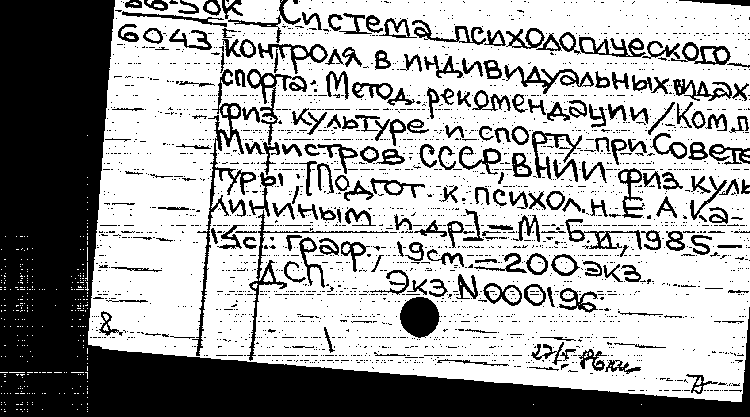 86-50к
6043
Система психологического
контроля в индивидуальных видах
спорта: Метод. рекомендации/Ком. п
физ. культуре и спорту при Совете
Министров СССР, ВНИИ физ. куль
туры; [Подгот. к. психол. н. Е. А. Ка-
лининым и др.].— М.: Б. и., 1985.—
с.: граф.; 19 см.— 200 экз.
ДСП. Экз. N 000196.
8
27/5 86